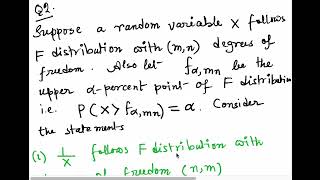 Q2.
Suppose a random variable X follows
F distribution with (m,n) degrees of
freedom. Also let fα,mn be the
upper α-percent point of F distribution
i.e. P(X > fα,mn) = α. Consider
the statements
(1) 1/X follows F distribution with
of freedom (n,m)